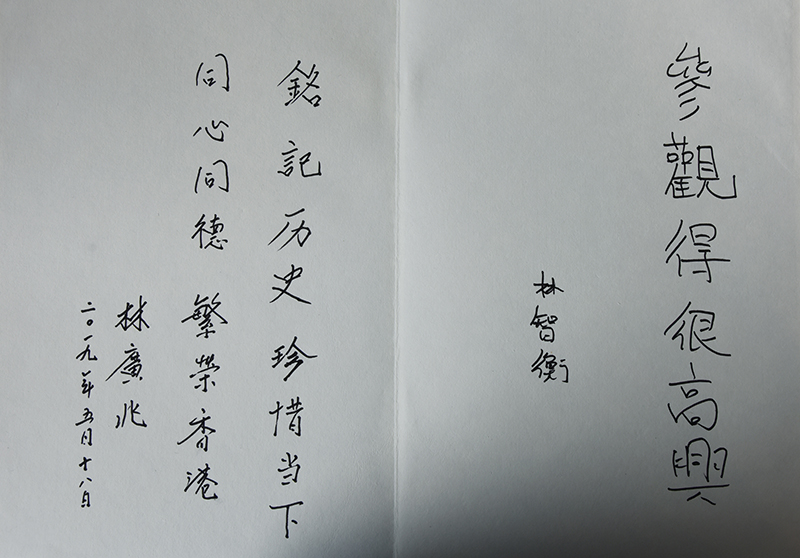 參觀得很高興
林智衡
銘記历史珍惜当下
同心同德繁榮香港
林廣兆
二〇一九年五月十八日